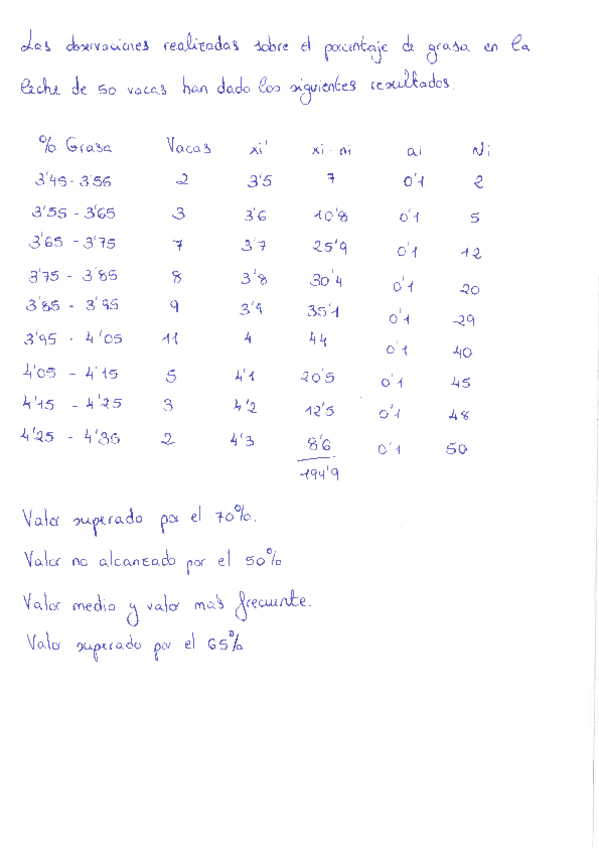 Las observaciones realizadas sobre el porcentaje de grasa en la
leche de 50 vacas han dado los siguientes resultados.
% Grasa Vacas xi' xi · ni ai Ni
3'45 - 3'55 2 3'5 7 0'1 2
3'55 - 3'65 3 3'6 10'8 0'1 5
3'65 - 3'75 7 3'7 25'9 0'1 12
3'75 - 3'85 8 3'8 30'4 0'1 20
3'85 - 3'95 9 3'9 35'1 0'1 29
3'95 - 4'05 11 4 44 0'1 40
4'05 - 4'15 5 4'1 20'5 0'1 45
4'15 - 4'25 3 4'2 12'5 0'1 48
4'25 - 4'35 2 4'3 8'6 0'1 50
194'9
Valor superado por el 70%.
Valor no alcanzado por el 50%
Valor medio y valor mas frecuente.
Valor superado por el 65%